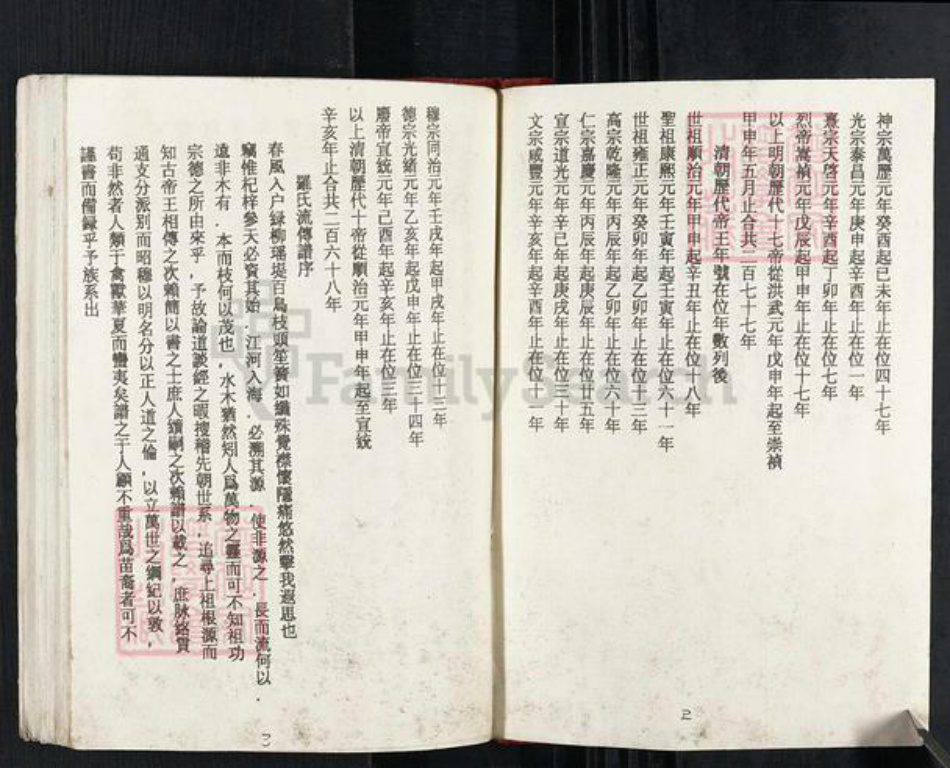 神宗萬歷元年癸酉起已未年止在位四十七年
光宗泰昌元年庚申起辛酉年止在位一年
熹宗天啓元年辛酉起丁卯年止在位七年
烈帝嵩禎元年戊辰起甲申年止在位十七年
以上明朝歷代十七帝從洪武元年戊申年起至崇禎
甲申年五月止合共二百七十七年
清朝歷代帝王年號在位年數列後
世祖順治元年甲申起辛丑年止在位十八年
聖祖康熙元年壬寅年起壬寅年止在位六十一年
世祖雍正元年癸卯年起乙卯年止在位十三年
高宗乾隆元年丙辰年起乙卯年止在位六十年
仁宗嘉慶元年丙辰年起庚辰年止在位廿五年
宣宗道光元年辛已年起庚戌年止在位三十年
文宗咸豐元年辛亥年起辛酉年止在位十一年
2
穆宗同治元年壬戌年起甲戌年止在位十三年
德宗光緒元年乙亥年起戊申年止在位三十四年
廢帝宣統元年己酉年起辛亥年止在位三年
以上清朝歷代十帝從順治元年甲申年起至宣統
辛亥年止合共二百六十八年
羅氏流傳譜序
春風入户緑柳瑶堤百鳥枝頭笙簧如繽殊覺襟懷隱痛悠然擊我遐思也
竊惟杞梓參天必資其始．江河入海．必溯其源．使非源之．長而流何以．
遠非木有．本而枝何以茂也，水木猶然矧人爲萬物之靈而可不知祖功
宗德之所由來乎，予故論道談經之暇搜稽先朝世系，追尋上祖根源而
知古帝王相傳之次賴簡以書之士庶人續嗣之次賴譜以載之，庶脉絡貫
通支分派别而昭穆以明名分以正人道之倫，以立萬世之綱紀以敦，
苟非然者人類于禽獸華夏而蠻夷矣譜之于人顧不重哉爲苗裔者可不
謹書而備録乎予族系出
3
FamilySearch